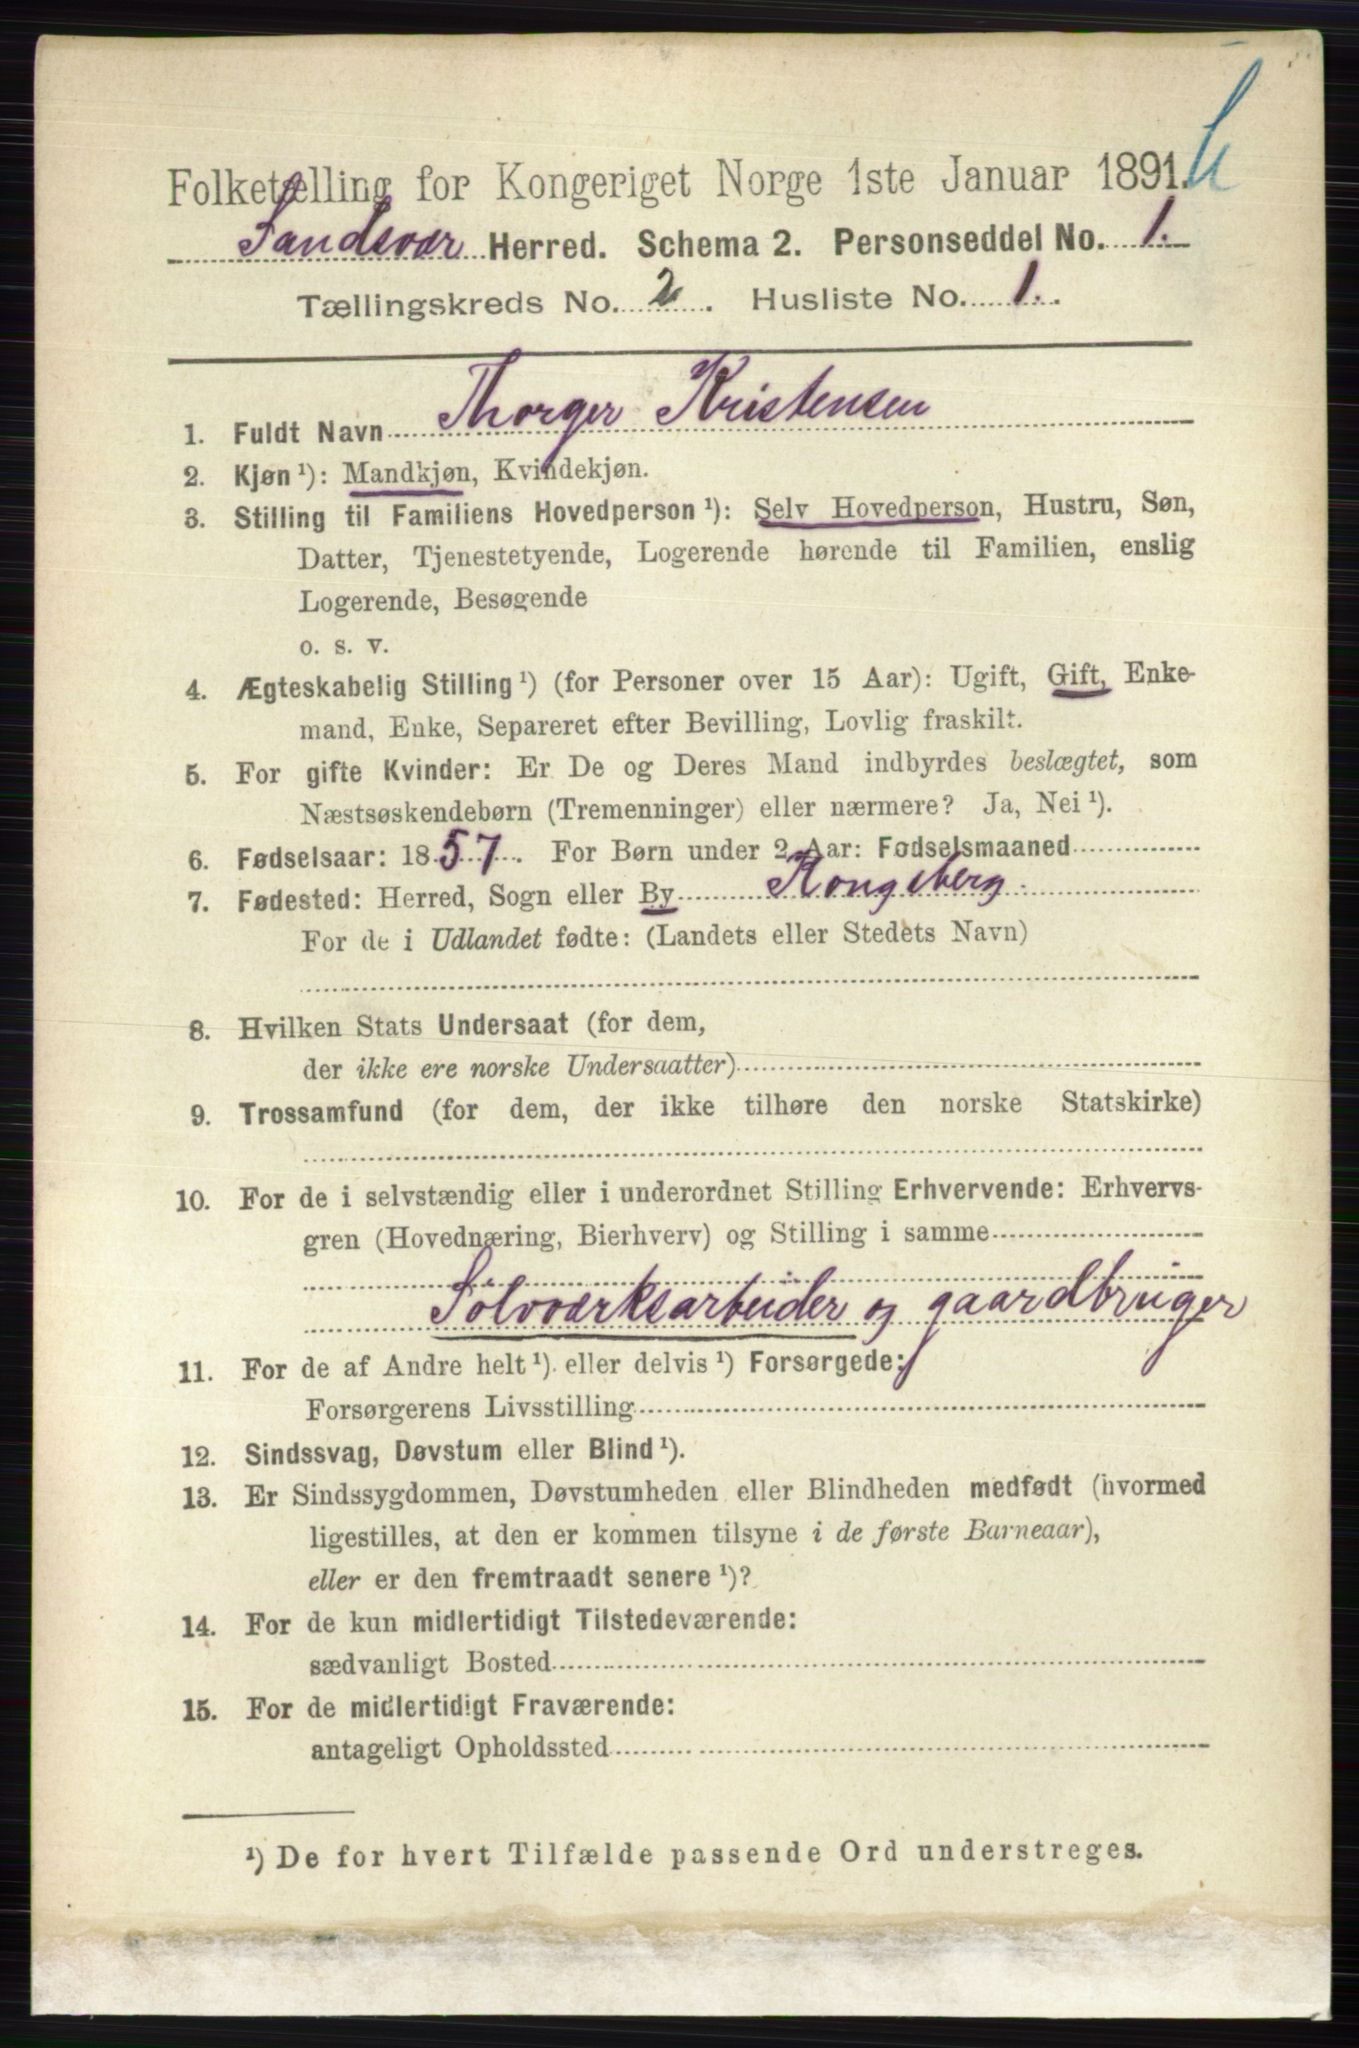 Folketælling for Kongeriget Norge 1ste Januar 1891.
Sandsvær Herred. Schema 2. Personseddel No. 1.
Tællingskreds No. 2. Husliste No. 1.
1. Fuldt Navn Thorger Kristensen
2. Kjøn ¹): Mandkjøn, Kvindekjøn.
3. Stilling til Familiens Hovedperson ¹): Selv Hovedperson, Hustru, Søn,
Datter, Tjenestetyende, Logerende hørende til Familien, enslig
Logerende, Besøgende
o. s. v.
4. Ægteskabelig Stilling ¹) (for Personer over 15 Aar): Ugift, Gift, Enke-
mand, Enke, Separeret efter Bevilling, Lovlig fraskilt.
5. For gifte Kvinder: Er De og Deres Mand indbyrdes beslægtet, som
Næstsøskendebørn (Tremenninger) eller nærmere? Ja, Nei ¹).
6. Fødselsaar: 1857. For Børn under 2 Aar: Fødselsmaaned
7. Fødested: Herred, Sogn eller By Kongsberg.
For de i Udlandet fødte: (Landets eller Stedets Navn)
8. Hvilken Stats Undersaat (for dem,
der ikke ere norske Undersaatter)
9. Trossamfund (for dem, der ikke tilhøre den norske Statskirke)
10. For de i selvstændig eller i underordnet Stilling Erhvervende: Erhvervs-
gren (Hovednæring, Bierhverv) og Stilling i samme
Sølvværksarbeider og gaardbruger
11. For de af Andre helt ¹) eller delvis ¹) Forsørgede:
Forsørgerens Livsstilling
12. Sindssvag, Døvstum eller Blind ¹).
13. Er Sindssygdommen, Døvstumheden eller Blindheden medfødt (hvormed
ligestilles, at den er kommen tilsyne i de første Barneaar),
eller er den fremtraadt senere ¹)?
14. For de kun midlertidigt Tilstedeværende:
sædvanligt Bosted
15. For de midlertidigt Fraværende:
antageligt Opholdssted
¹) De for hvert Tilfælde passende Ord understreges.